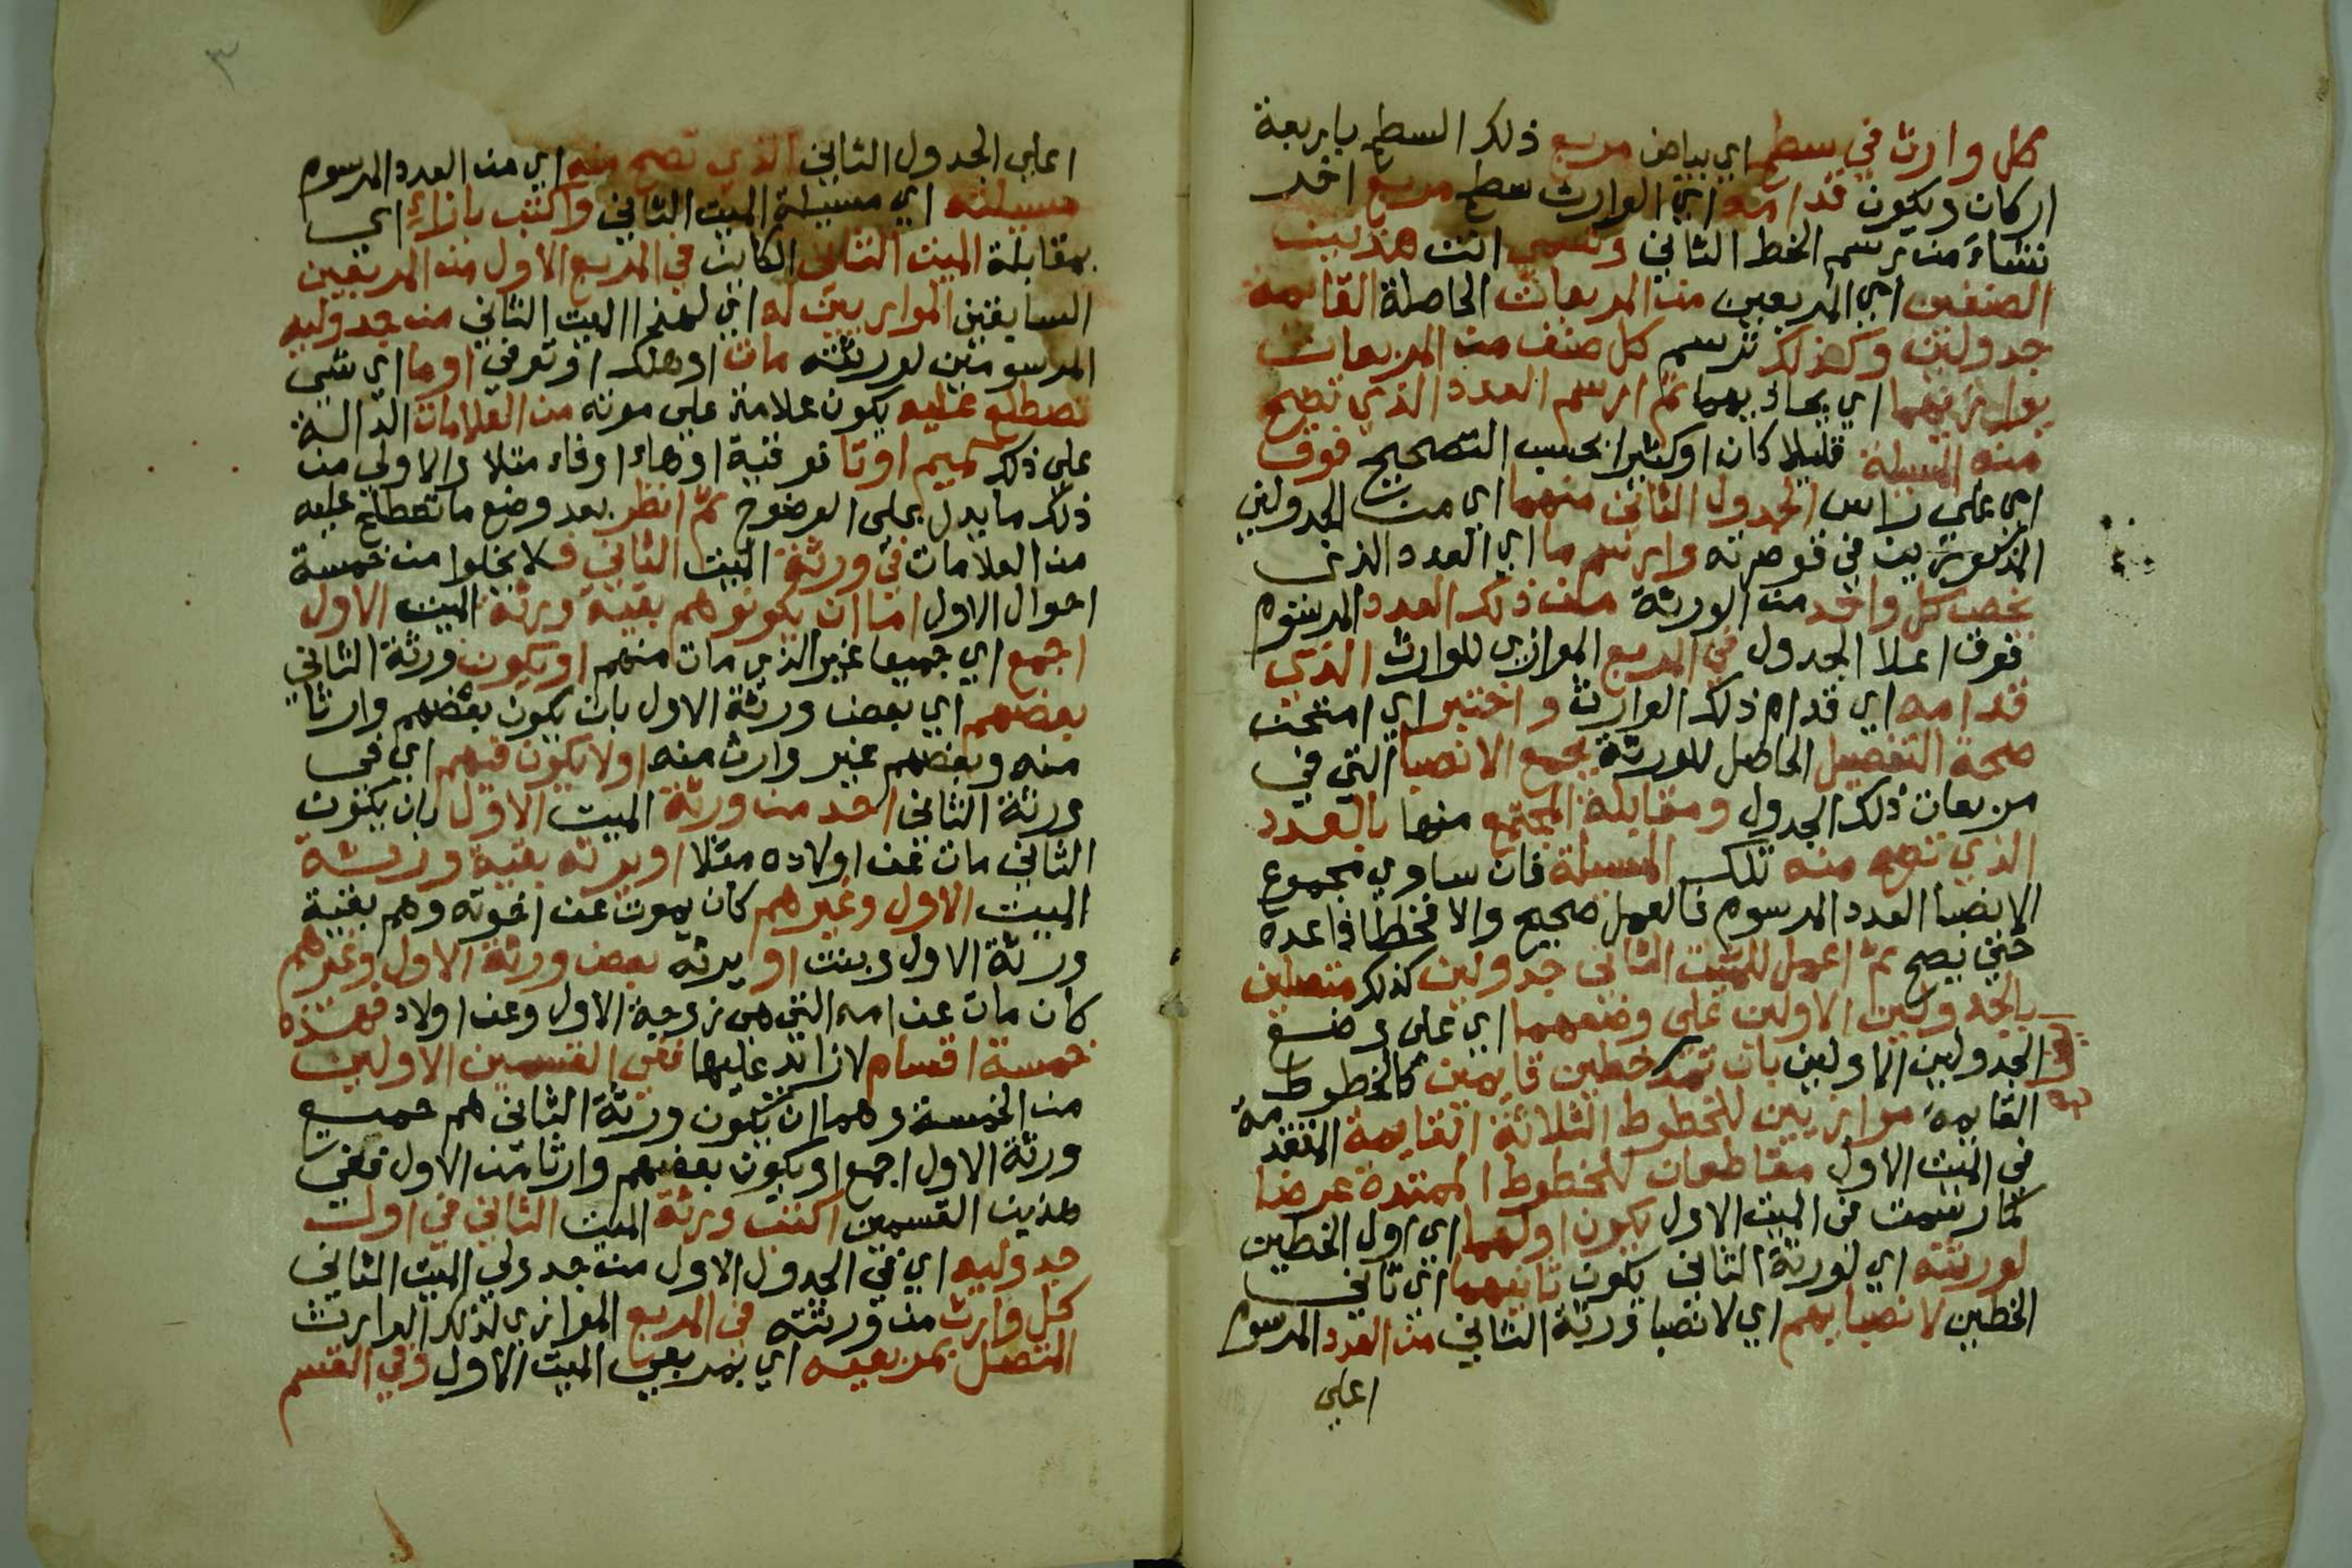 كل وارث في سطح اي بياض مربع ذلك السطح باربعة
اركان ويكون قدامه اي الوارث سطح مربع اخر
تنشاء من رسم الخط الثاني وتسمي انت هذين
الصنفين اي المربعين من المربعات الحاصلة القايمه
جدولين وكذلك ترسم كل صنف من المربعات
يوازيهما اي يحاذيهما ثم ارسم العدد الذي تصح
منه المسيلة قليلا كان او كثيرا بحسب التصحيح فوق
اي علي راس الجدول الثاني منهما اي من الجدولين
المذكورين في قوصرته وارسم ما اي العدد الذي
يخص كل واحد من الورثة من ذلك العدد المرسوم
فوق اعلا الجدول في المربع الموازي للوارث الذي
قدامه اي قدام ذلك الوارث واختبر اي امتحن
صحة التفصيل الحاصل للورثة بجمع الانصبا التي في
مربعات ذلك الجدول ومقابلة المجتمع منها بالعدد
الذي تصح منه تلك المسيلة فان ساوي مجموع
الانصبا العدد المرسوم فالعمل صحيح والا فخطا فاعده
حتي يصح ثم اعمل للميت الثاني جدولين كذلك متصلين
بالجدولين الاولين علي وضعهما اي علي وضع
الجدولين الاولين بان تمد خطين قايمين كالخطوط
القايمة موازيين للخطوط الثلاثة القايمة المتقدمة
في الميت الاول مقاطعان للخطوط الممتدة عرضا
كما رسمت في الميت الاول يكون اولهما اي اول الخطين
لورثته اي لورثة الثاني يكون ثانيهما اي ثاني
الخطين لانصبايهم اي لانصبا ورثة الثاني من العدد المرسوم
اعلي
٣
اعلي الجدول الثاني الذي تصح منه اي من العدد المرسوم
مسيلته اي مسيلة الميت الثاني واكتب بازاء اي
بمقابلة الميت الثاني الكاين في المربع الاول من المربعين
السابقين الموازيين له اي لهذا الميت الثاني من جدوليه
المرسومين لورثته مات او هلك او توفي او ما اي شي
تصطلح عليه يكون علامة علي موته من العلامات الدالة
علي ذلك كميم او تا توفية او هاء او فاء مثلا والاولي من
ذلك ما يدل علي الوضوح ثم انظر بعد وضع ما تصطلح عليه
من العلامات في ورثة الميت الثاني فلا يخلوا من خمسة
احوال الاول اما ان يكونوا هم بقية ورثة الميت الاول
اجمع اي جميعا غير الذي مات منهم او يكون ورثة الثاني
بعضهم اي بعض ورثة الاول بان يكون بعضهم وارثا
منه وبعضهم غير وارث منه او لا يكون فيهم اي في
ورثة الثاني احد من ورثة الميت الاول بان يكون
الثاني مات عن اولاده مثلا او يرثه بقية ورثة
الميت الاول وغيرهم كان يموت عن اخوته وهم بقية
ورثة الاول وبنت او يرثه بعض ورثة الاول وغيرهم
كان مات عن امه التي هي زوجة الاول وعن اولاد فهذه
خمسة اقسام لا زائد عليها ففي القسمين الاولين
من الخمسة وهما ان يكون ورثة الثاني هم جميع
ورثة الاول اجمع او يكون بعضهم وارثا من الاول ففي
هذين القسمين اكتب ورثة الميت الثاني في اول
جدوليه اي في الجدول الاول من جدولي الميت الثاني
كل وارث من ورثته في المربع الموازي لذلك الوارث
المتصل بمربعيه اي بمربعي الميت الاول وفي القسم